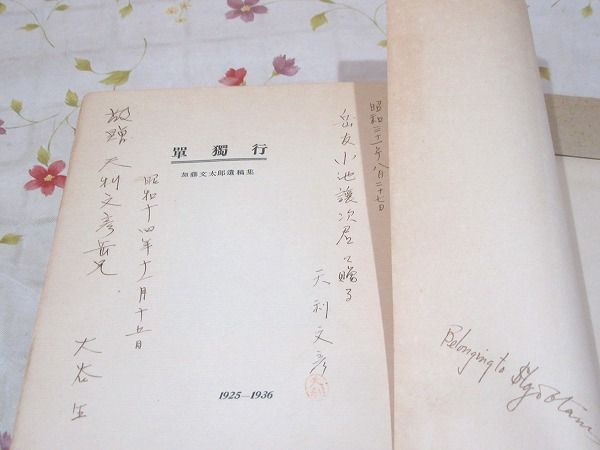 單獨行
加藤文太郎遺稿集
1925—1936
昭和三十一年八月二十七日
岳友小池讓次君に贈る
天利文彦
敬贈 天利文彦岳兄
昭和十四年十一月十五日
大谷生
Belonging to